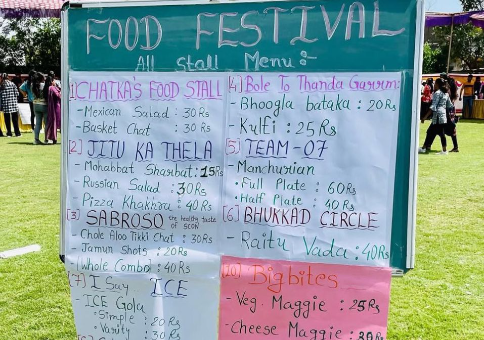 FOOD FESTIVAL
All Stall Menu :-
1) CHATKA'S FOOD STALL
- Mexican Salad : 30 Rs
- Basket Chat : 30 Rs
2) JITU KA THELA
- Mohabbat Sharbat : 15 Rs
- Russian Salad : 30 Rs
- Pizza Khakhra : 40 Rs
3) SABROSO the healthy taste of SCON
- Chole Aloo Tikki Chat : 30 Rs
- Jamun Shots : 20 Rs
- Whole Combo : 40 Rs
7) I Say ICE
- ICE Gola
- Simple : 20 Rs
- Varity : 30 Rs
4) Bole To Thanda Garam:
- Bhoogla bataka : 20 Rs
- Kulfi : 25 Rs
5) TEAM - 07
- Manchurian
• Full Plate : 60 Rs
• Half Plate : 40 Rs
6) BHUKKAD CIRCLE
- Raitu Vada : 40 Rs
10) Bigbites
- Veg. Maggie : 25 Rs
- Cheese Maggie : 30 Rs